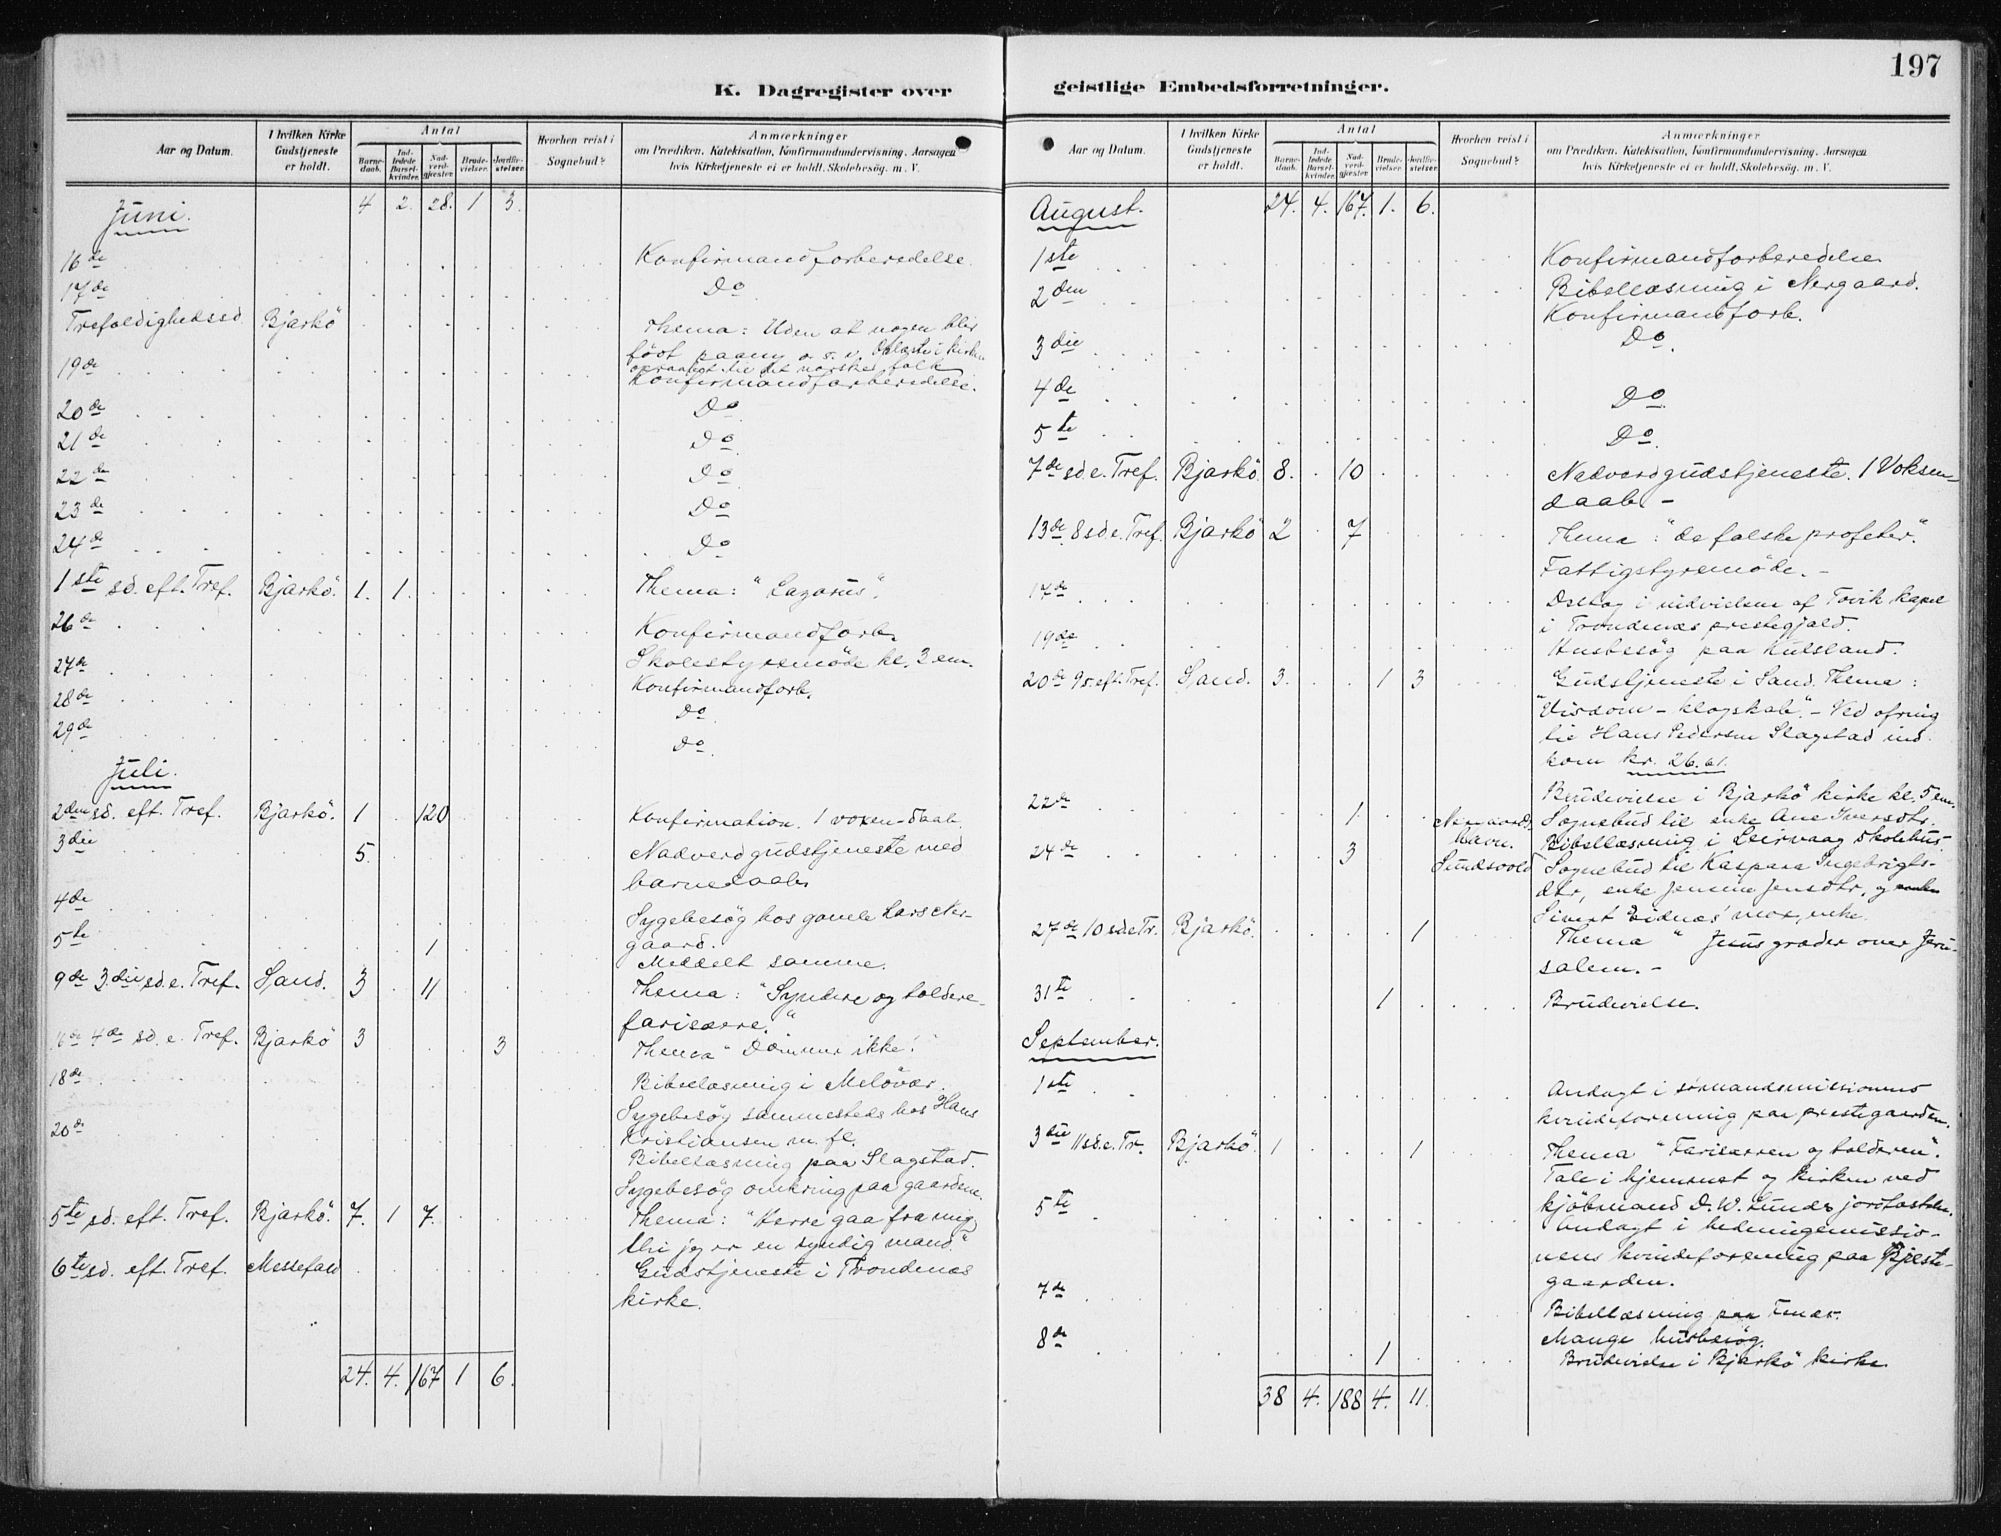 197
K. Dagregister over geistlige Embedsforretninger.
Aar og Datum. I hvilken Kirke Gudstjeneste er holdt. Antal Barnedaab. Indledede Barselkvinder. Nadverdgjæster. Brudevielser. Jordfæstelser. Hvorhen reist i Sognebud? Anmærkninger
om Prædiken, Katekisation, Konfirmandundervisning, Aarsagen
hvis Kirketjeneste ei er holdt, Skolebesøg. m. V.
Juni. 4 2. 28. 1 3.
16de Konfirmandforberedelse.
17de Do
Trefoldighedssd. Bjarkö Thema: Uden at nogen blir
födt paany o. s. v. Oplæste i kirken
opraabet til det norske folk
19de Konfirmandforberedelse.
20de Do
21de Do
22de Do
23de Do
24de Do
1ste sd. eft. Tref. Bjarkö. 1. 1. Thema: "Lazarus".
26de Konfirmandforb.
27de Skolestyremöde kl. 3 em.
28de Konfirmandforb.
Do
29de Do
Juli.
2den sd. eft. Tref. Bjarkö. 1 120 Konfirmation. 1 voxen-daab.
3die 5. Nadverdgudstjeneste med
barnedaab
4de Sygebesög hos gamle Lars Ner-
gaard.
5te 1 Meddelt samme.
9de 3die sd. e. Tref. Sand. 3 11 Thema: "Syndere og toldere-
farisæere."
16de 4de sd. e. Tref. Bjarkö 3 3 Thema "Dömmer ikke!"
18de Bibellæsning i Melövær.
Sygebesög sammesteds hos Hans
Kristiansen m. fl.
20de Bibellæsning paa Slagstad.
Sygebesög omkring paa gaardene.
5te sd. eft. Tref. Bjarkö. 7. 1 7. Thema: "Herre gaa fra mig
thi jeg er en syndig mand."
6te sd. eft. Tref. Messefald Gudstjeneste i Trondenæs
kirke.
24. 4. 167 1 6.
Aar og Datum. I hvilken Kirke Gudstjeneste er holdt. Antal Barnedaab. Indledede Barselkvinder. Nadverdgjæster. Brudevielser. Jordfæstelser. Hvorhen reist i Sognebud? Anmærkninger
om Prædiken, Katekisation, Konfirmandundervisning, Aarsagen
hvis Kirketjeneste ei er holdt, Skolebesøg. m. V.
August. 24. 4. 167. 1. 6.
1ste Konfirmandforberedelse
2den Bibellæsning i Nergaard.
Konfirmandforb.
3die Do
4de Do
5te Do
7de sd. e. Tref. Bjarkö 8. 10 Nadverdgudstjeneste. 1 Voksen-
daab. -
13de 8 sd. e. Tref. Bjarkö 2 7 Thema: "de falske profeter".
Fattigstyremöde. -
17de Deltog i indvielsen af Tovik kapel
i Trondenæs prestegjæld.
19de Husbesög paa
20de 9 s. eft. Tref. Sand. 3. 1 3 Gudstjeneste i Sand. Thema:
"Visdom - klogskab". - Ved ofring
til Hans Pedersen Slagstad ind-
kom kr. 26.61.
22de Brudevielse i Bjarkö kirke kl. 5 em.
1 Sognebud til enke Ane Iversdtr.
24de havn. Bibellæsning i Leirvaag skolehus.
3 Sundsvold Sognebud til Kaspara Ingebrigts-
dtr, enke Jensine Jensdtr, og
Sivert Eidnæs'
27de 10 sd e Tr. Bjarkö. 1 Thema "Jesus græder over Jeru-
salem. -
31te 1 Brudevielse.
September.
1ste Andagt i sömandsmissionens
kvindeforening paa prestegaarden.
3die 11 sd. e. Tr. Bjarkö. 1 1 Thema "Farisæeren og tolderen".
Tale i hjemmet og kirken ved
kjöbmand D. W. Lunds jordfæstelse.
5te Andagt i hedningemissio-
nens kvindeforening paa Preste-
gaarden.
7de Bibellæsning paa
Mange husbesög.
8de 1 Brudevielse i Bjarkö kirke.
38 4. 188 4. 11.